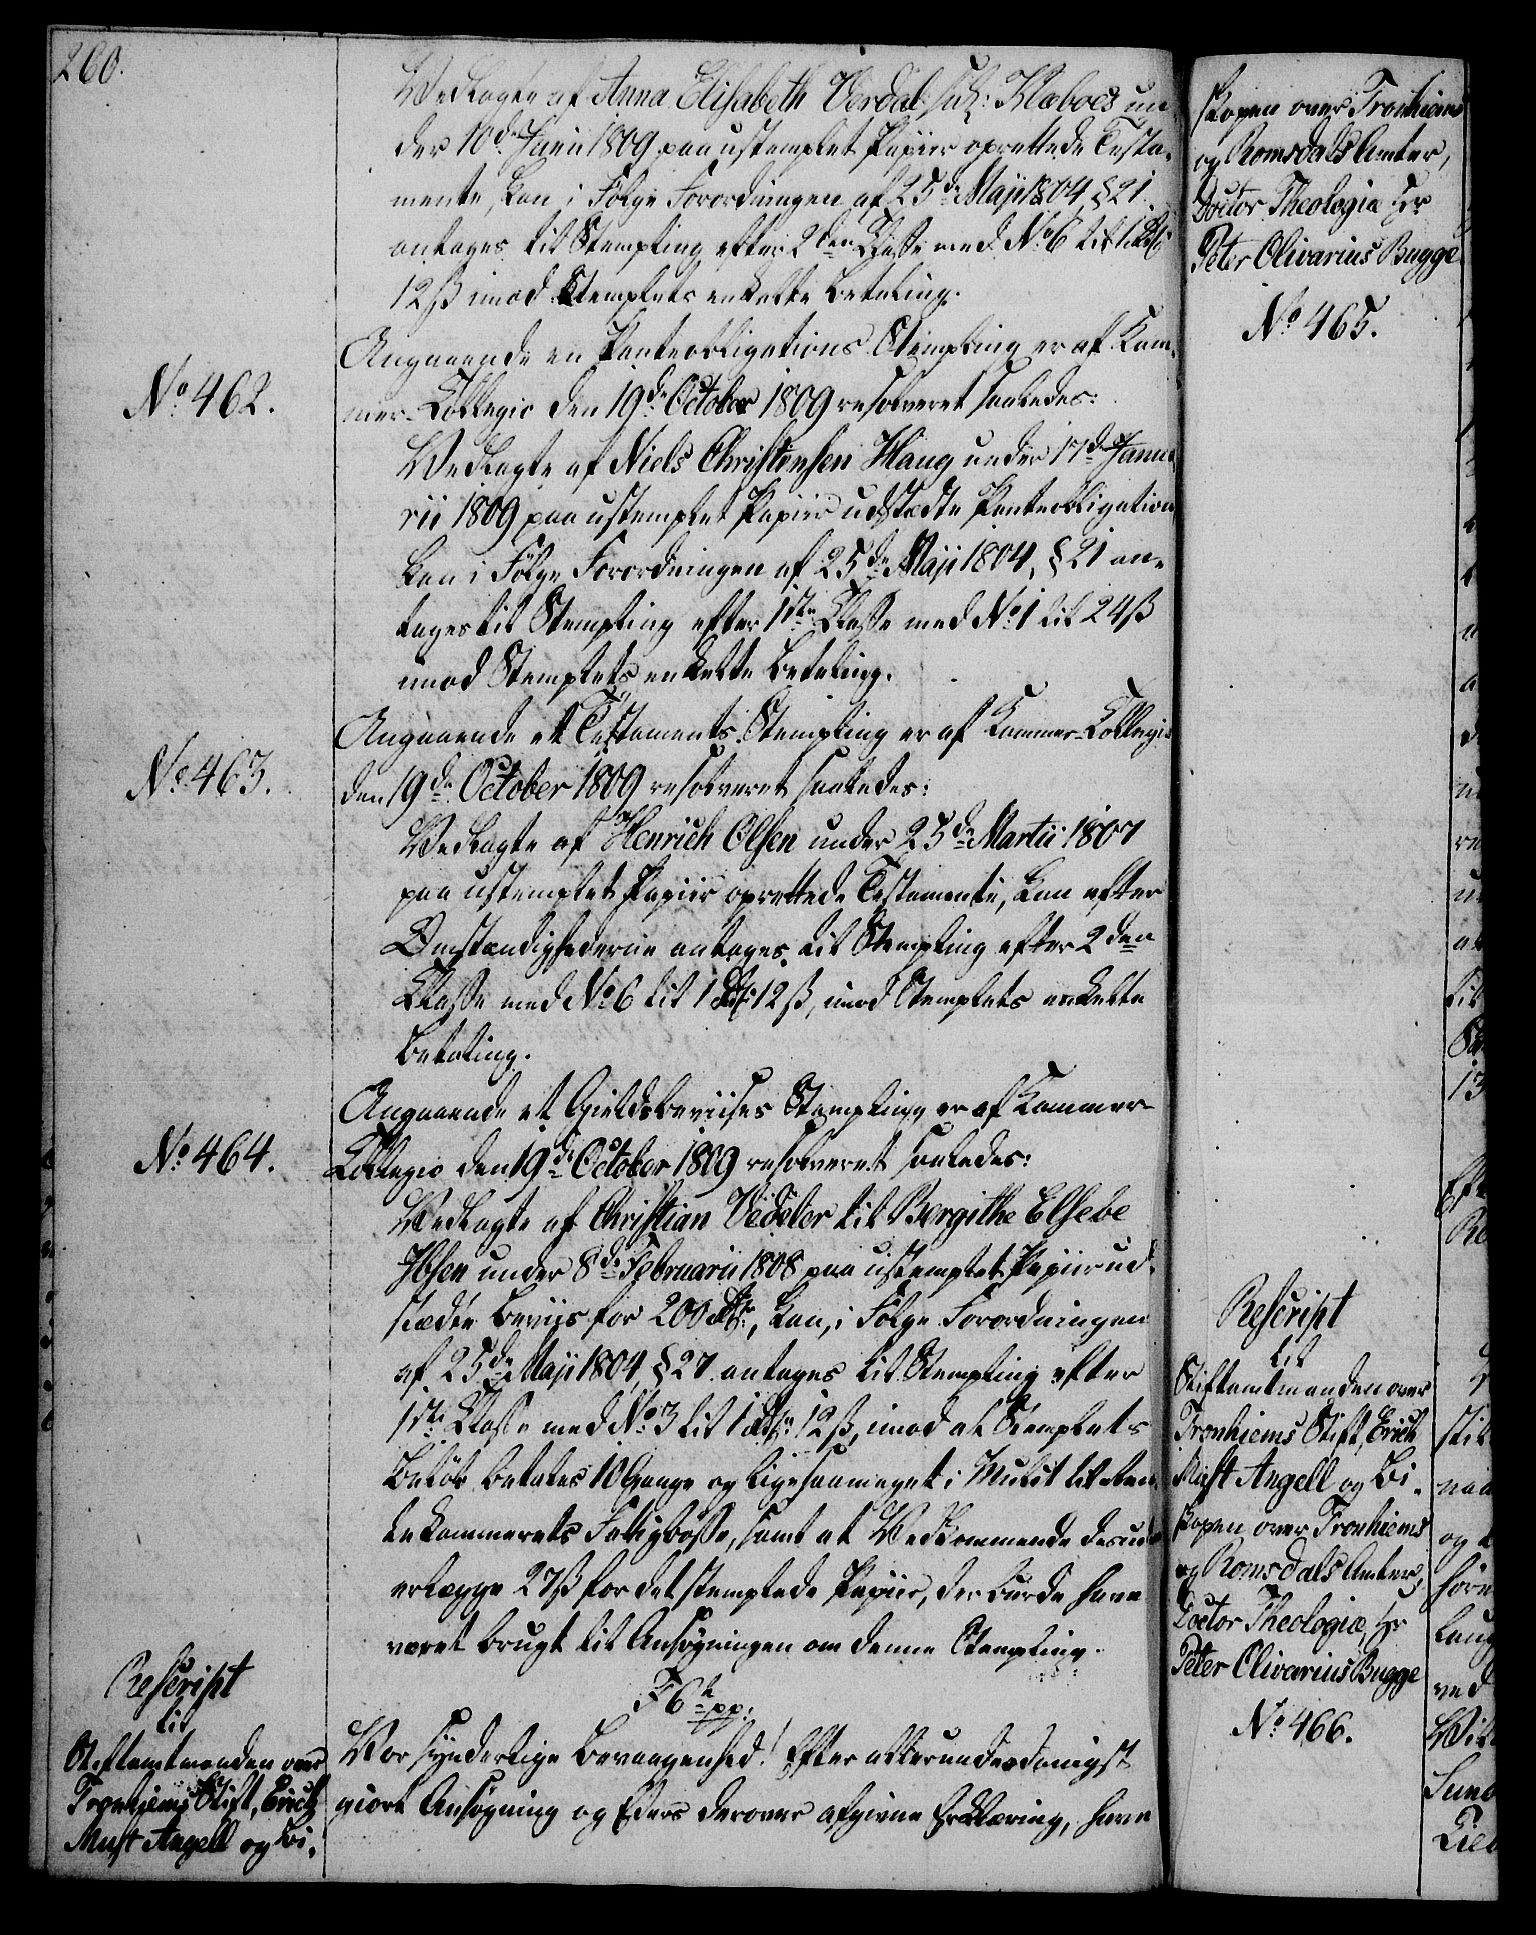 260.
Vedlagte af Anna Elisabeth Verdal sul: Klæboes un-
der 10de Junii 1809 paa ustemplet Papiir oprettede Testa-
mente, kan i Følge Forordningen af 25de Maji 1804, §21
antages til Stempling efter 2den Classe med No 6 til 1 Rd
12 ß imod Stemplets enkelte Betaling.
No 462.
Angaaende en Panteobligations Stempling er af Kam-
mer-Collegio den 19de October 1809 resolveret saaledes:
Vedlagte af Niels Christensen Haug under 17de Janua-
rii 1809 paa ustemplet Papiir udstædte Panteobligation
kan i Følge Forordningen af 25de Maji 1804, §21 an-
tages til Stempling efter 1ste Classe med No 1 til 24 ß
imod Stemplets enkelte Betaling.
No 463.
Angaaende et Testaments Stempling er af Kammer-Collegio
den 19de October 1809 resolveret saaledes:
Vedlagte af Henrich Olsen under 25de Martii 1807
paa ustemplet Papiir oprettede Testamente, kan efter
Omstændighederne antages til Stempling efter 2den
Classe med No 6 til 1 Rd: 12 ß, imod Stemplets enkelte
Betaling.
No 464.
Angaaende et Gieldsbeviises Stempling er af Kammer-
Collegio den 19de October 1809 resolveret saaledes:
Vedlagte af Christian Vedeler til Bergithe Elsebe
Ibsen under 8de Februarii 1808 paa ustemplet Papiir ud-
stædte Beviis for 200 Rdr, kan, i Følge Forordningen
af 25de Maji 1804, §27 antages til Stempling efter
1ste Classe med No 3 til 1 Rdr 12 ß, imod at Stemplets
Beløb betales 10 Gange og ligesaameget i Mulct til Ren-
tekammerets Fattigbøsse, samt at Vedkommende desuden
erlægge 27 ß for det stemplede Papiir, der burde have
været brugt til Ansøgningen om denne Stempling.
F 6te pp:
Rescript
til
Stiftamtmanden over
Tronhiems Stift, Erich
Must Angell og Bi-
Vor synderlige Bevaagenhed! Efter allerunderdanigst
giort Ansøgning og Eders derover afgivne Erklæring, have
skopen over Tronhiems
og Romsdals Amter,
Doctor Theologia Hr
Peter Olivarius Bugge
No 465.
Rescript
til
Stiftamtmanden over
Tronhiems Stift, Erich
Must Angell og Bi-
skopen over Tronhiems
og Romsdals Amter,
Doctor Theologiæ, Hr
Peter Olivarius Bugge
No 466.